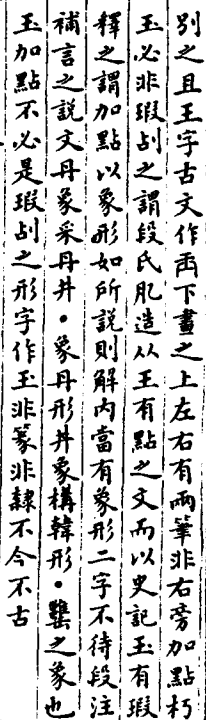 別之且王字古文作𠙻下畫之上左右有兩筆非右旁加點朽
玉必非瑕刮之謂段氏肊造从王有點之文而以史記玉有瑕
釋之謂加點以象形如所說則解內當有象形二字不待段注
補言之說文丹象采丹井・象丹形丼象構韓形・䍌之象也
玉加點不必是瑕刮之形字作玉非篆非隸不今不古